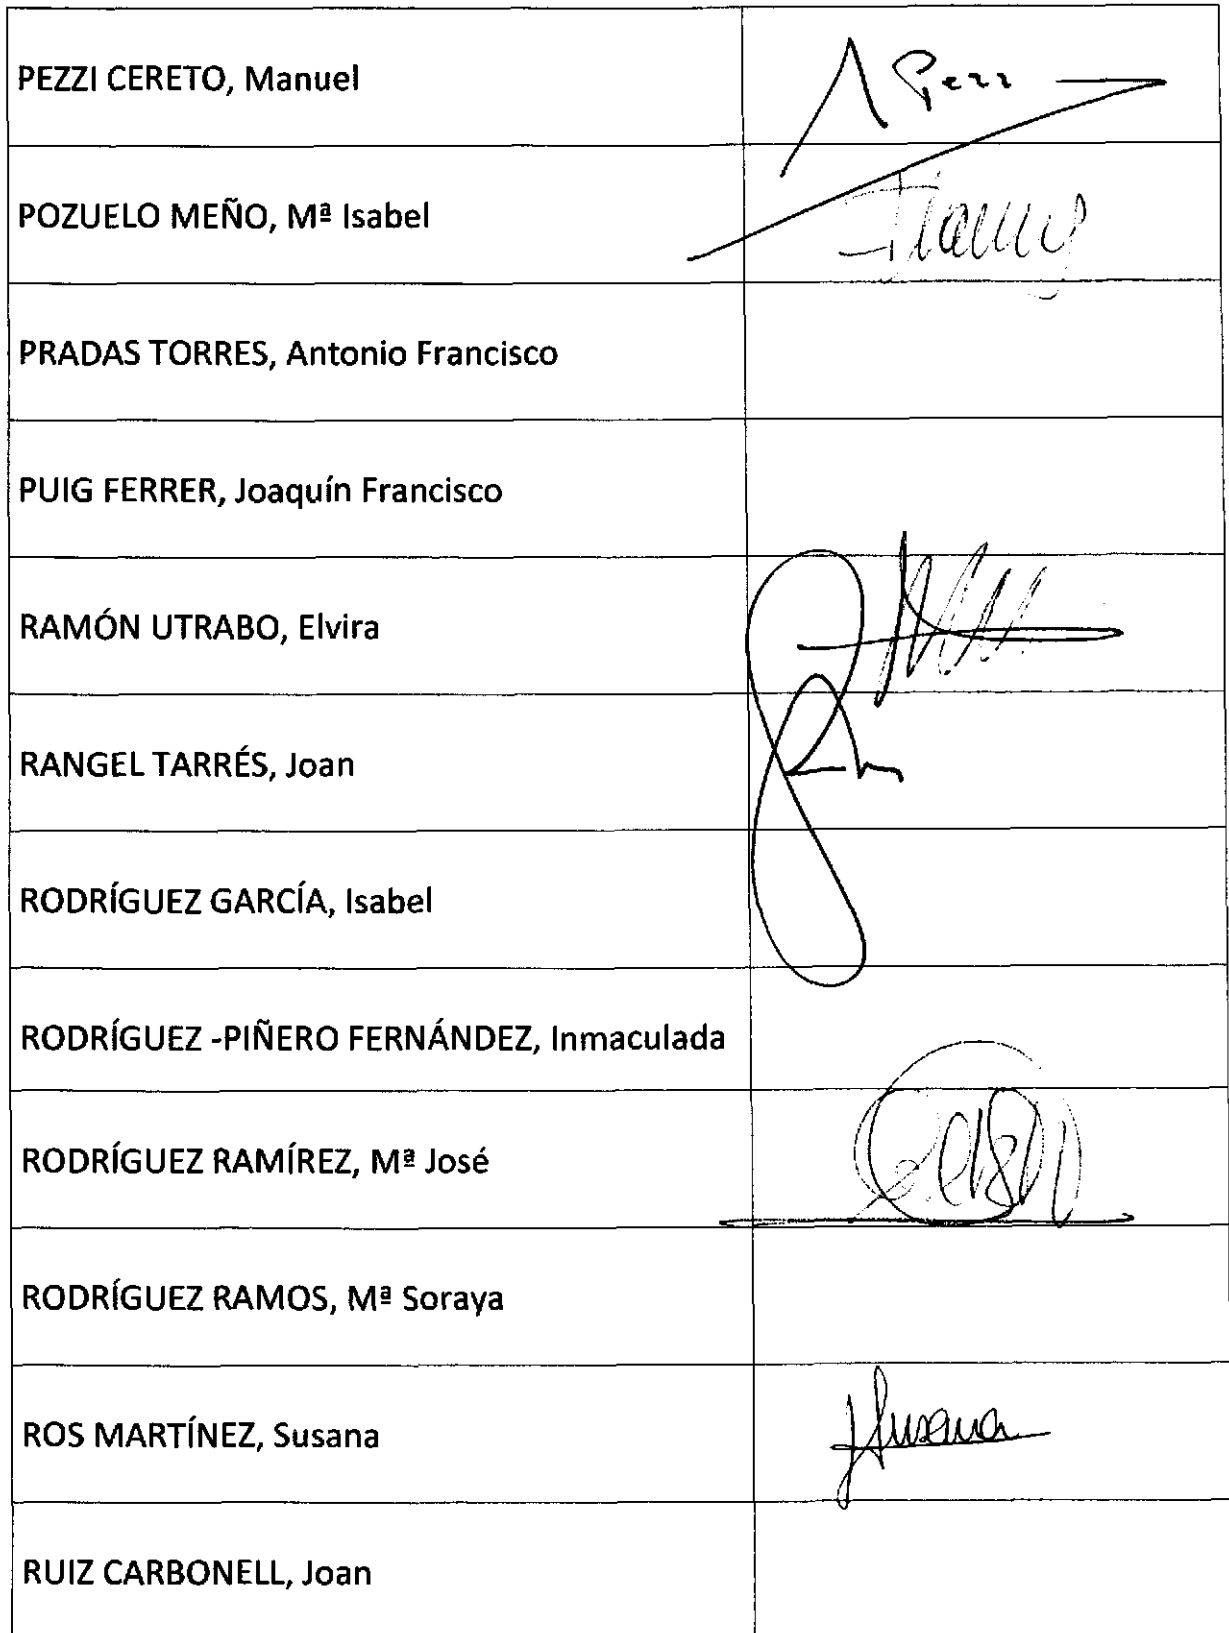 PEZZI CERETO, Manuel
POZUELO MEÑO, Mª Isabel
PRADAS TORRES, Antonio Francisco
PUIG FERRER, Joaquín Francisco
RAMÓN UTRABO, Elvira
RANGEL TARRÉS, Joan
RODRÍGUEZ GARCÍA, Isabel
RODRÍGUEZ -PIÑERO FERNÁNDEZ, Inmaculada
RODRÍGUEZ RAMÍREZ, Mª José
RODRÍGUEZ RAMOS, Mª Soraya
ROS MARTÍNEZ, Susana
Susana
RUIZ CARBONELL, Joan